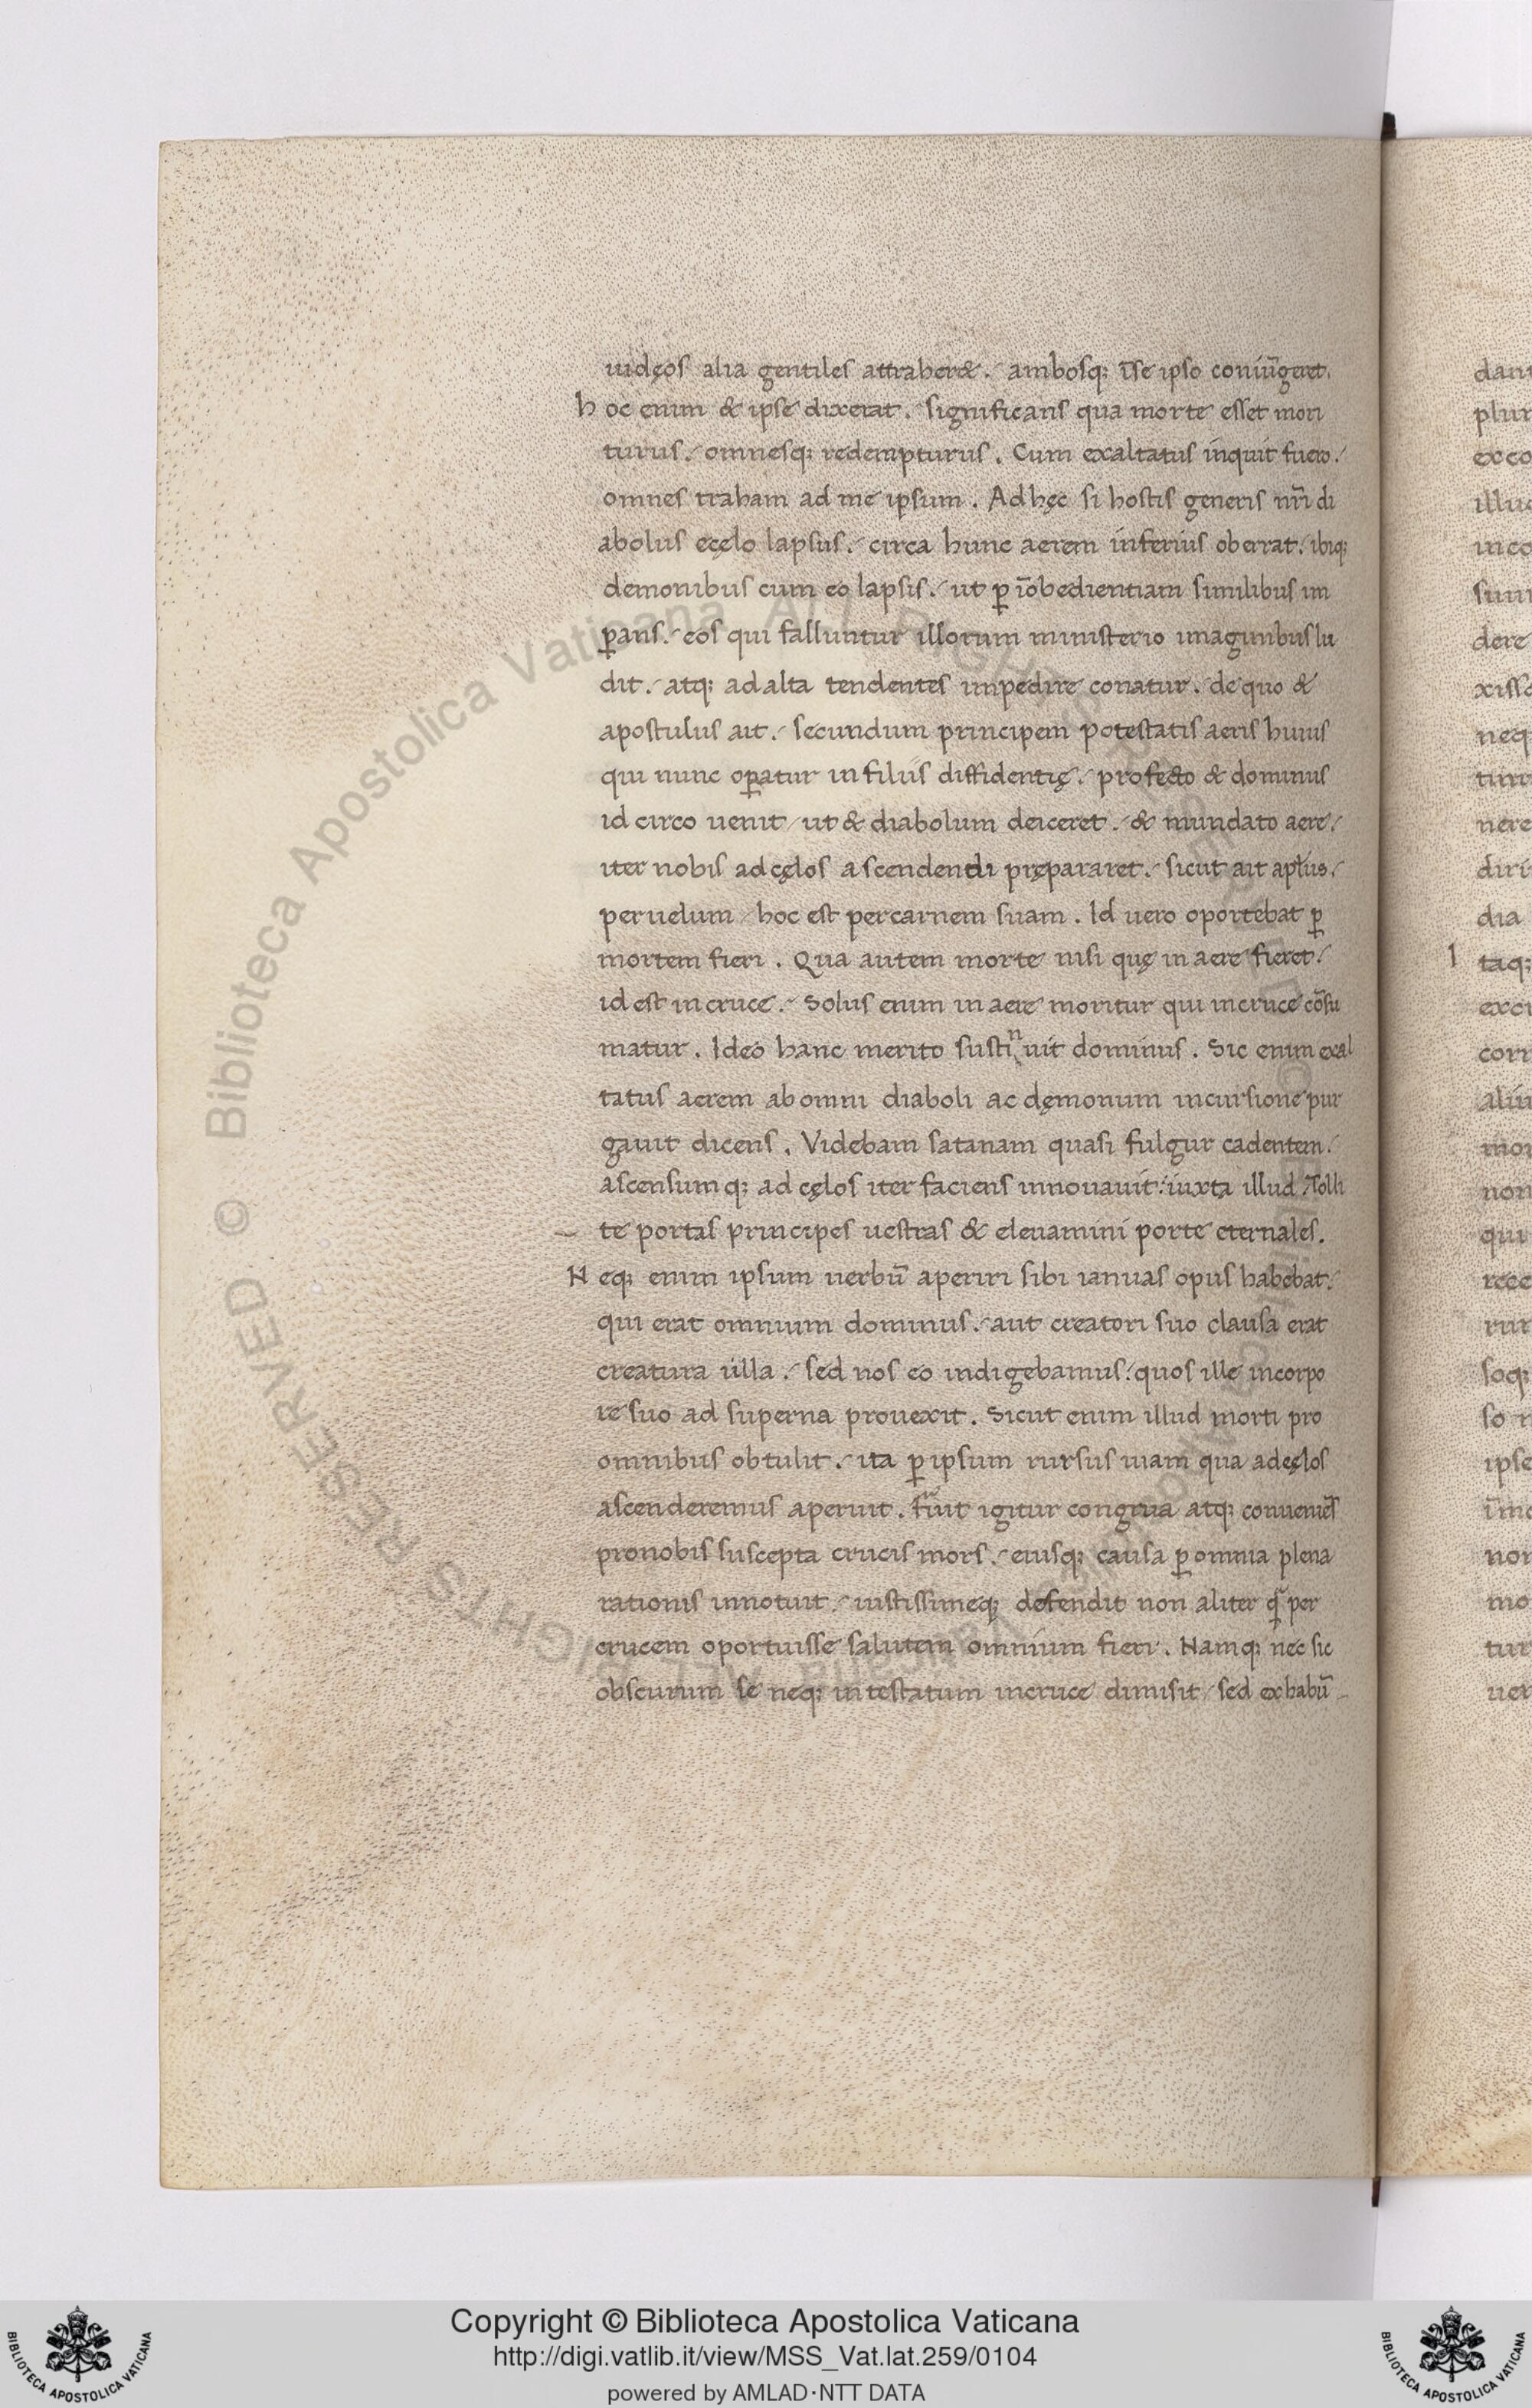 iudęos alia gentiles attraheret. ambosq; īse ipso coniūgeret.
hoc enim & ipse dixerat. significans qua morte esset mori
turus. omnesq; redempturus. Cum exaltatus inquit fuero.
omnes traham ad me ipsum. Ad hęc si hostis generis nr̄i di
abolus ecęlo lapsus. circa hunc aerem inferius oberrat. ibiq;
demonibus cum eo lapsis. ut ꝑ īobedientiam similibus im
ꝑans. eos qui falluntur illorum ministerio imaginibus lu
dit. atq; ad alta tendentes impedire conatur. de quo &
apostulus ait. secundum principem potestatis aeris huius
qui nunc oꝑatur in filiis diffidentię. profecto & dominus
id circo uenit / ut & diabolum deiceret. & mundato aere.
iter nobis ad cęlos ascendendi prępararet. sicut ait apłus.
per uelum / hoc est per carnem suam. Id uero oportebat ꝑ
mortem fieri. Qua autem morte nisi quę in aere fieret.
id est in cruce. Solus enim in aere moritur qui in cruce cōsu
matur. Ideo hanc merito sustinuit dominus. Sic enim exal
tatus aerem ab omni diaboli ac dęmonum incursione pur
gauit dicens. Videbam satanam quasi fulgur cadentem.
ascensumq; ad cęlos iter faciens innouauit. iuxta illud. Tolli
te portas principes uestras & eleuamini porte eternales.
Neq; enim ipsum uerbū aperiri sibi ianuas opus habebat.
qui erat omnium dominus. aut creatori suo clausa erat
creatura ulla. sed nos eo indigebamus. quos ille in corpo
re suo ad superna prouexit. Sicut enim illud morti pro
omnibus obtulit. ita ꝑ ipsum rursus uiam qua ad cęlos
ascenderemus aperuit. fuit igitur congrua atq; conueniēs
pro nobis suscepta crucis mors. eiusq; causa ꝑ omnia plena
rationis innotuit. iustissimeq; defendit non aliter q̄ per
crucem oportuisse salutem omnium fieri. Namq; nec sic
obscurum se neq; intestatum in cruce dimisit / sed ex habū
dant
plur
exco
illu
inco
sim
dere
xisse
neq
tur
nere
diri
dia
I taq;
exci
corr
aliu
mor
non
qui
rece
rur
soq;
so n
ipse
īmo
non
mo
tur
uer
Copyright © Biblioteca Apostolica Vaticana
http://digi.vatlib.it/view/MSS_Vat.lat.259/0104
powered by AMLAD·NTT DATA